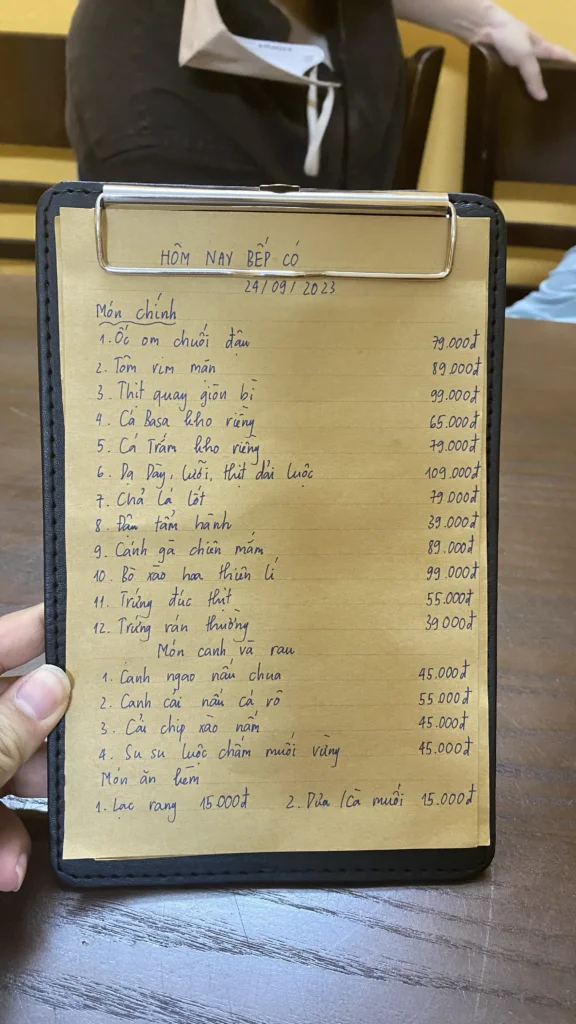 HÔM NAY BẾP CÓ
24/09/2023
Món chính
1. Ốc om chuối đậu 79.000đ
2. Tôm rim mặn 89.000đ
3. Thịt quay giòn bì 99.000đ
4. Cá Basa kho riềng 65.000đ
5. Cá Trắm kho riềng 79.000đ
6. Dạ Dày, lưỡi, thịt dải luộc 109.000đ
7. Chả lá lốt 79.000đ
8. Đậu tẩm hành 39.000đ
9. Cánh gà chiên mắm 89.000đ
10. Bò xào hoa thiên lí 99.000đ
11. Trứng đúc thịt 55.000đ
12. Trứng rán thường 39.000đ
Món canh và rau
1. Canh ngao nấu chua 45.000đ
2. Canh cải nấu cá rô 55.000đ
3. Cải chip xào nấm 45.000đ
4. Su su luộc chấm muối vừng 45.000đ
Món ăn kèm
1. Lạc rang 15.000đ 2. Dưa /Cà muối 15.000đ